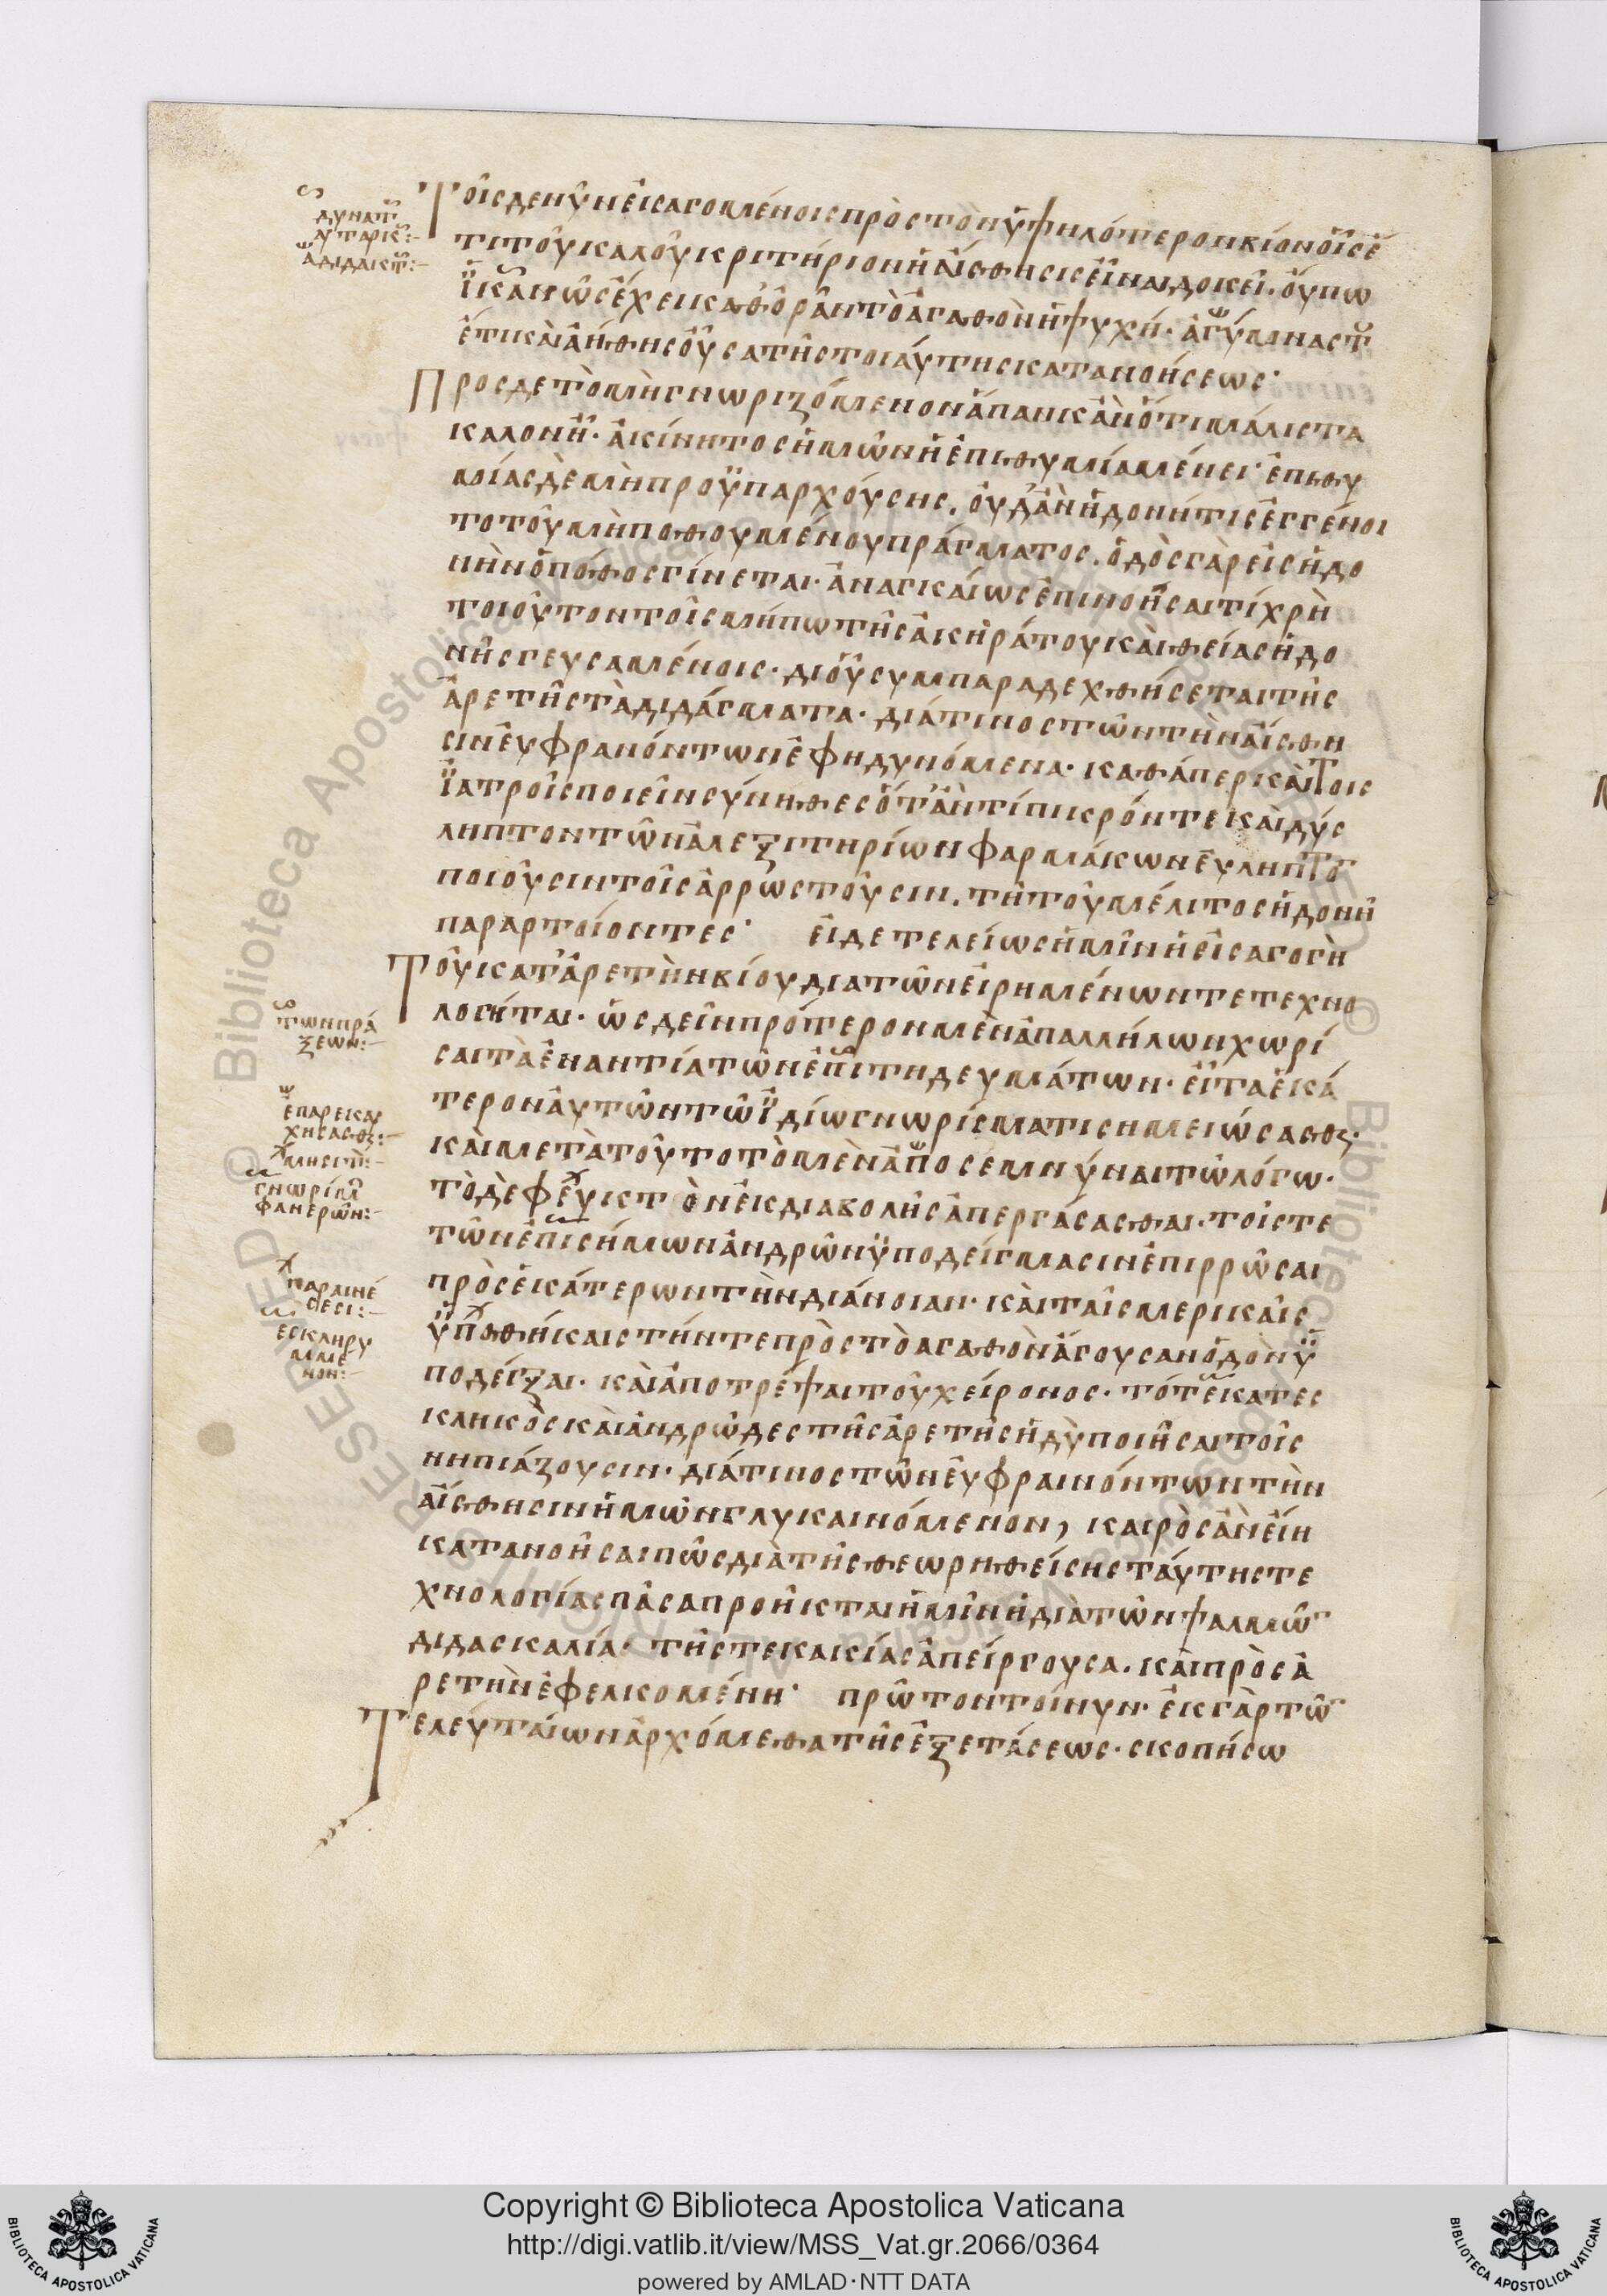 Τοῖς δε νῦν εἰσαγομένοις πρὸς τὸν ὑψηλότερον βίον οἷς ἔ
τι τοῦ καλοῦ κριτήριον ἡ αἴσθησις εἶναι δοκεῖ. οὔπω
ἱκανῶς ἔχει καθορᾶν τὸ ἀγαθὸν ἡ ψυχή· ἀγύμναστ
ἔτι καὶ ἀήθης οὖσα τῆς τοιαύτης κατανοήσεως·
Προς δε τὸ μὴ γνωριζόμενον ἅπαν κἂν ὅτι μάλιστα
καλον ᾖ· ἀκίνητος ἡμῶν ἡ ἐπιθυμία μένει· ἐπιθυ
μίας δὲ μὴ προϋπαρχούσης. οὐδ' ἂν ἡδονή τις ἐγγένοι
το τοῦ μὴ ποθουμένου πράγματος. ὁδὸς γὰρ εἰς ἡδο
νὴν ὁ πόθος γίνεται· ἀναγκαίως ἐπινοῆσαι τί χρὴ
τοιοῦτον τοῖς μήπω τῆς ἀκηράτου καὶ θείας ἡδο
νῆς γευσαμένοις· δι οὗ συμπαραδεχθήσεται τῆς
ἀρετῆς τὰ διδάγματα· διά τινος τῶν τὴν αἴσθη
σιν εὐφρανόντων ἐφηδυνόμενα· καθάπερ καὶ τοις
ἰατροῖς ποιεῖν σύνηθες ὅτ' ἄν τί πικρόν τε καὶ δύς
ληπτον τῶν ἀλεξιτηρίων φαρμάκων εὔληπτο
ποιοῦσιν τοῖς ἀρρωστοῦσιν. τῆ τοῦ μέλιτος ἡδονῆ
παραρτοίοντες· εἰ δε τελείως ἡμῖν ἡ εἰσαγογὴ
Τοῦ κατ' ἀρετὴν βίου δια τῶν εἰρημένων τετεχνο
λογήται· ὡς δεῖν πρότερον μὲν ἀπ αλλήλων χωρί
σαι τὰ ἐναντία τῶν ἐπιτηδευμάτων· εἶτα ἑκά
τερον αὐτῶν τῶ ἰδίω γνωρίσματι σημειώσασθαι·
καὶ μετὰ τοῦτο τὸ μὲν ἀποσεμνύναι τῶ λόγω·
τὸ δὲ φευκτὸν ἐκ διαβολῆς ἀπεργάσασθαι· τοῖς τε
τῶν ἐπισήμων ἀνδρῶν ὑποδείγμασιν ἐπιρρῶσαι
πρὸς ἑκάτερων τὴν διάνοιαν· καὶ ταῖς μερικαῖς
ὑποθήκαις τήν τε πρὸς τὸ αγαθὸν ἄγουσαν ὁδὸν ὑ
ποδεῖξαι· καὶ ἀποτρέψαι τοῦ χείρονος· τό τε κατες
κληκὸς καὶ ἀνδρῶδες τῆς ἀρετῆς ἡδὺ ποιῆσαι τοῖς
νηπιάζουσιν· διά τινος τῶν εὐφραινόντων τὴν
αἴσθησιν ἡμῶν γλυκαινόμενον, καιρὸς ἂν εἴη
κατανοῆσαι πῶς διὰ τῆς θεωρηθείσης ταύτης τε
χνολογίας πᾶσα προῆκται ἡμῖν ἡ διὰ τῶν ψαλμῶ
διδασκαλία· τῆς τε κακίας ἀπείργουσα. καὶ πρὸς ἀ
ρετὴν ἐφελκομένη· πρῶτον τοίνυν· ἐκ γὰρ τῶ
Τελευταίων ἀρχόμεθα τῆς ἐξετάσεως· σκοπήσω
τῶν πρά
ξεων:
φανερῶν:
παραινέ
σεσι:
εσκληρυ
μμε
νον:
Copyright © Biblioteca Apostolica Vaticana
http://digi.vatlib.it/view/MSS_Vat.gr.2066/0364
powered by AMLAD·NTT DATA